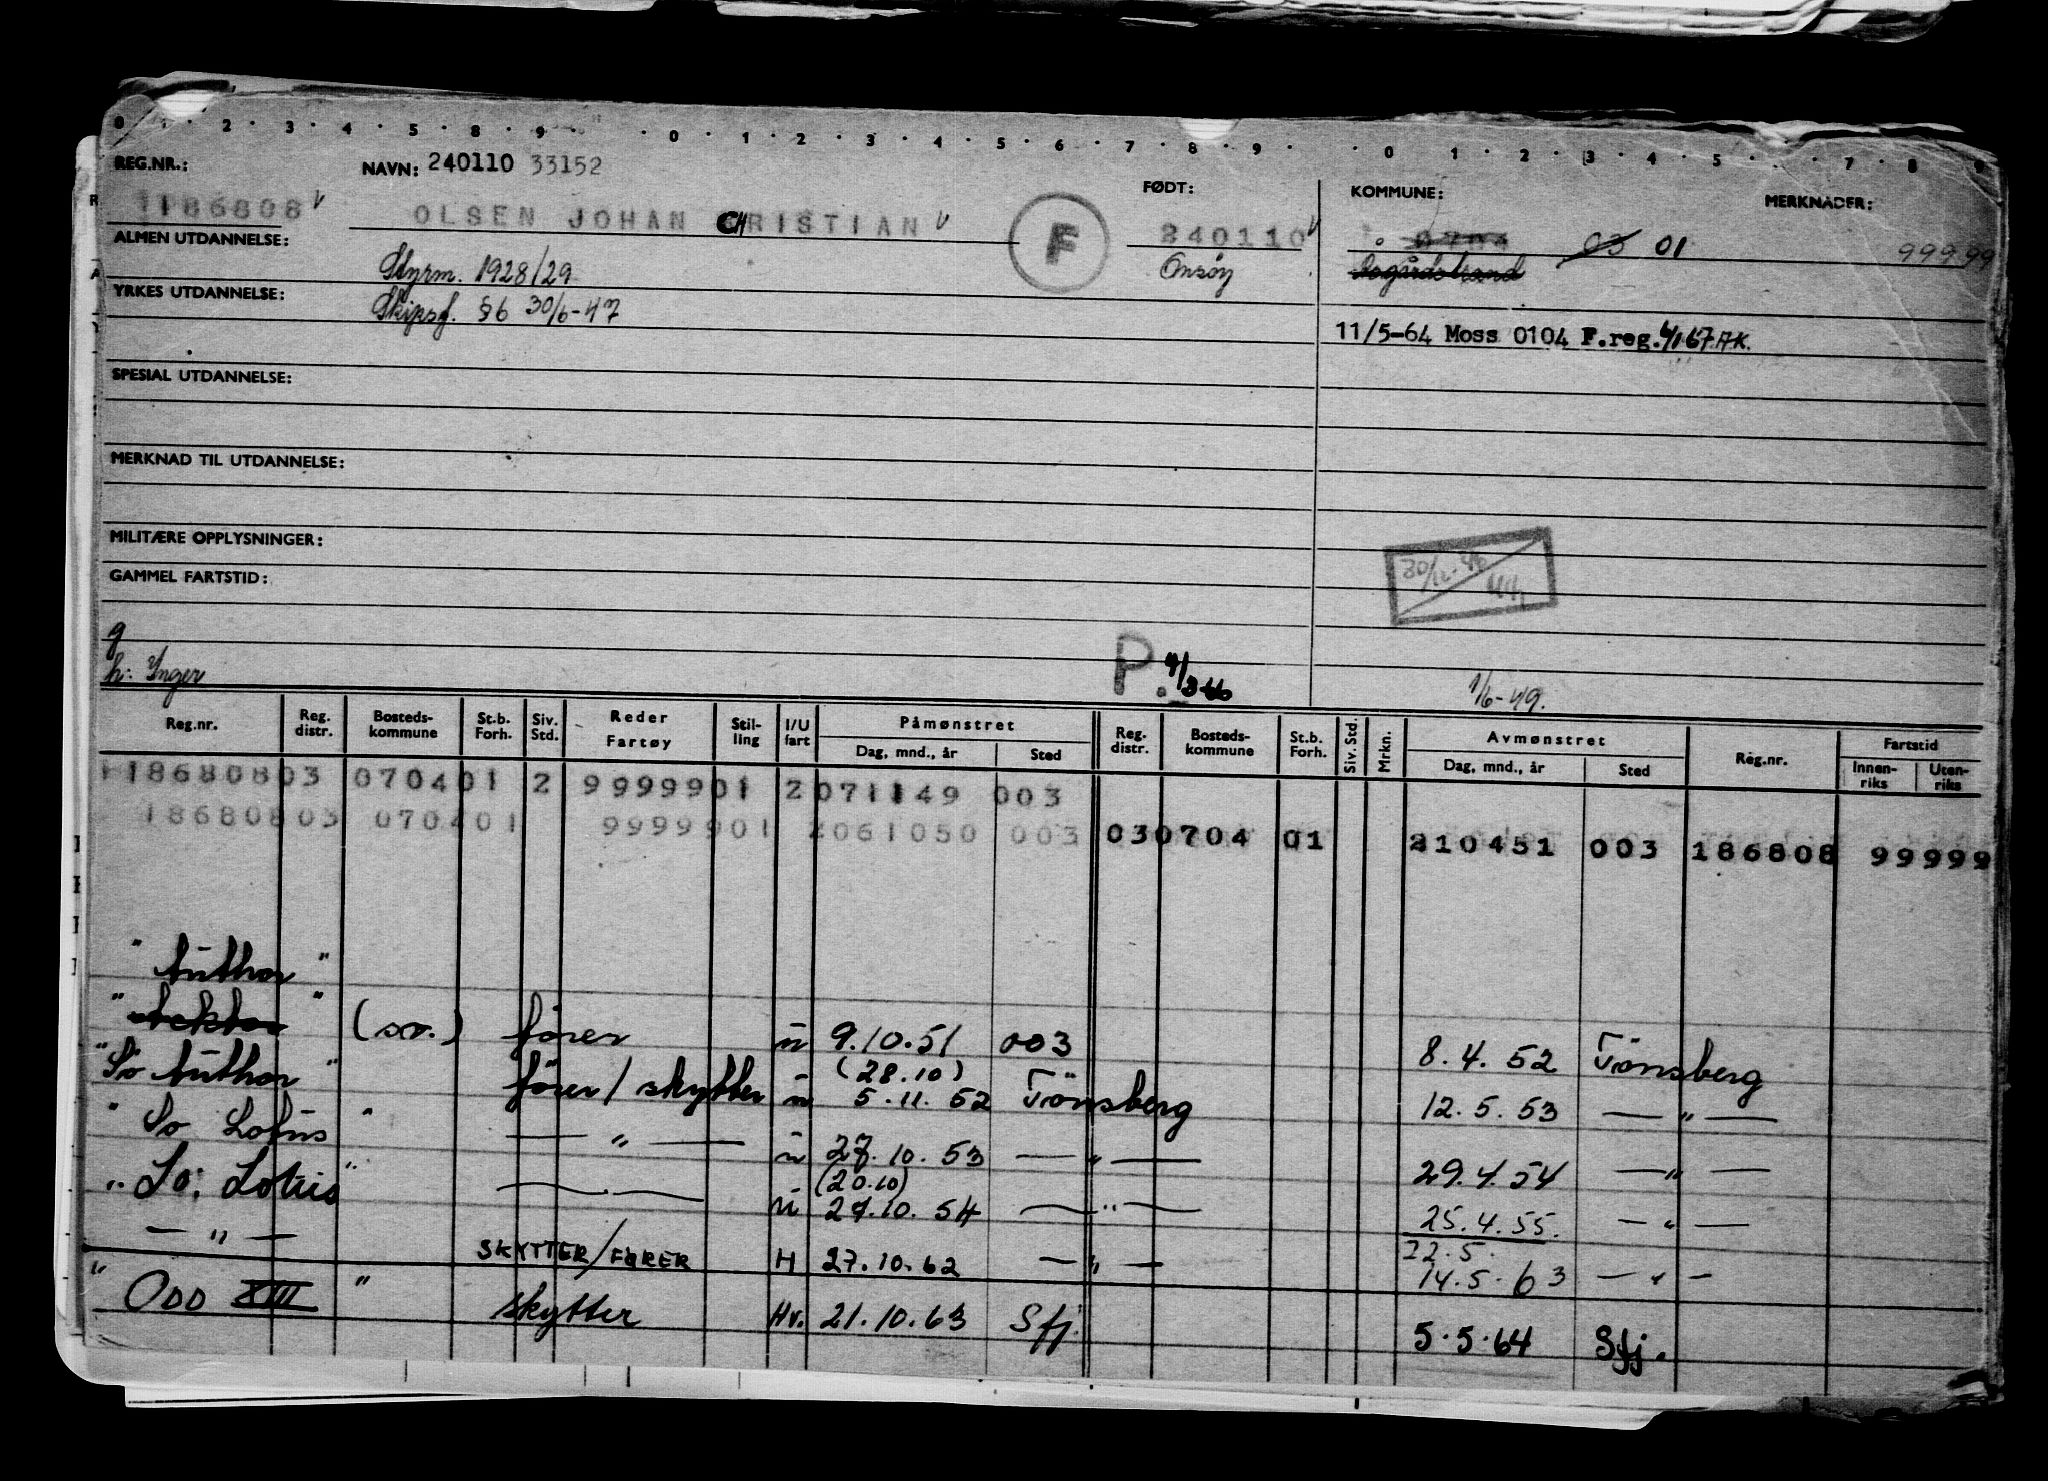 0 1 2 3 4 5 8 9 0 1 2 3 4 5 6 7 8 9 0 1 2 3 4 5 7 8 9
REG.NR.: NAVN: 240110 33152 FØDT: KOMMUNE: MERKNADER:
1186808 OLSEN JOHAN CHRISTIAN F 240110 0704 03 01 99999
ALMEN UTDANNELSE: Styrm. 1928/29 Onsøy Åsgårdstrand
YRKES UTDANNELSE: Skipsf. §6 30/6-47
11/5-64 Moss 0104 F.reg. 4/1 67 A.K.
SPESIAL UTDANNELSE:
MERKNAD TIL UTDANNELSE:
MILITÆRE OPPLYSNINGER:
30/12-46
GAMMEL FARTSTID:
g
h: Inger P. 4/3-66 1/6-49.
Reg.nr. Reg. distr. Bosteds-kommune St.b. Forh. Siv. Std. Reder Fartøy Stil-ling I/U fart Påmønstret Dag, mnd., år Sted Reg. distr. Bosteds-kommune St.b. Forh. Siv. Std. Mrkn. Avmønstret Dag, mnd., år Sted Reg.nr. Fartstid Innen-riks Uten-riks
118680803 070401 2 9999901 2071149 003
18680803 070401 9999901 2061050 003 030704 01 210451 003 186808 99999
" Author "
" " (so.) fører u 9.10.51 003 8.4.52 Tönsberg
"So Author " fører/skytter u (28.10) 5.11.52 Tönsberg 12.5.53 — " —
" So Lotus " — " — u 27.10.53 — " — 29.4.54 — " —
" So; Lotus " — u (20.10) 27.10.54 — " — 25.4.55. — " —
— " — SKYTTER/FØRER H 27.10.62 — " — 22.5. 14.5.63 — " —
" ODD XIII " skytter Hv. 21.10.63 Sfj. 5.5.64 Sfj.